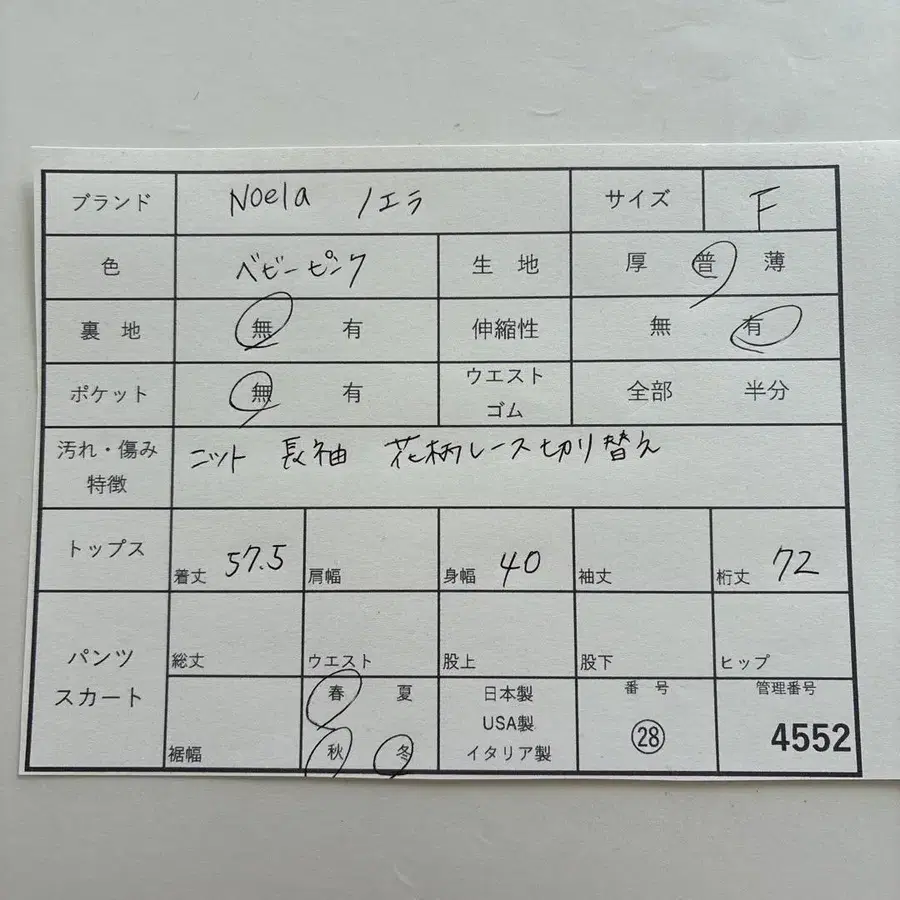 ブランド Noela ノエラ サイズ F
色 ベビーピンク 生地 厚 普 薄
裏地 無 有 伸縮性 無 有
ポケット 無 有 ウエスト
ゴム 全部 半分
汚れ・傷み
特徴 ニット 長袖 花柄レース切り替え
トップス 着丈 57.5 肩幅 身幅 40 袖丈 裄丈 72
パンツ
スカート 総丈 ウエスト 股上 股下 ヒップ
裾幅 春 夏
秋 冬
日本製
USA製
イタリア製
番号
28
管理番号
4552